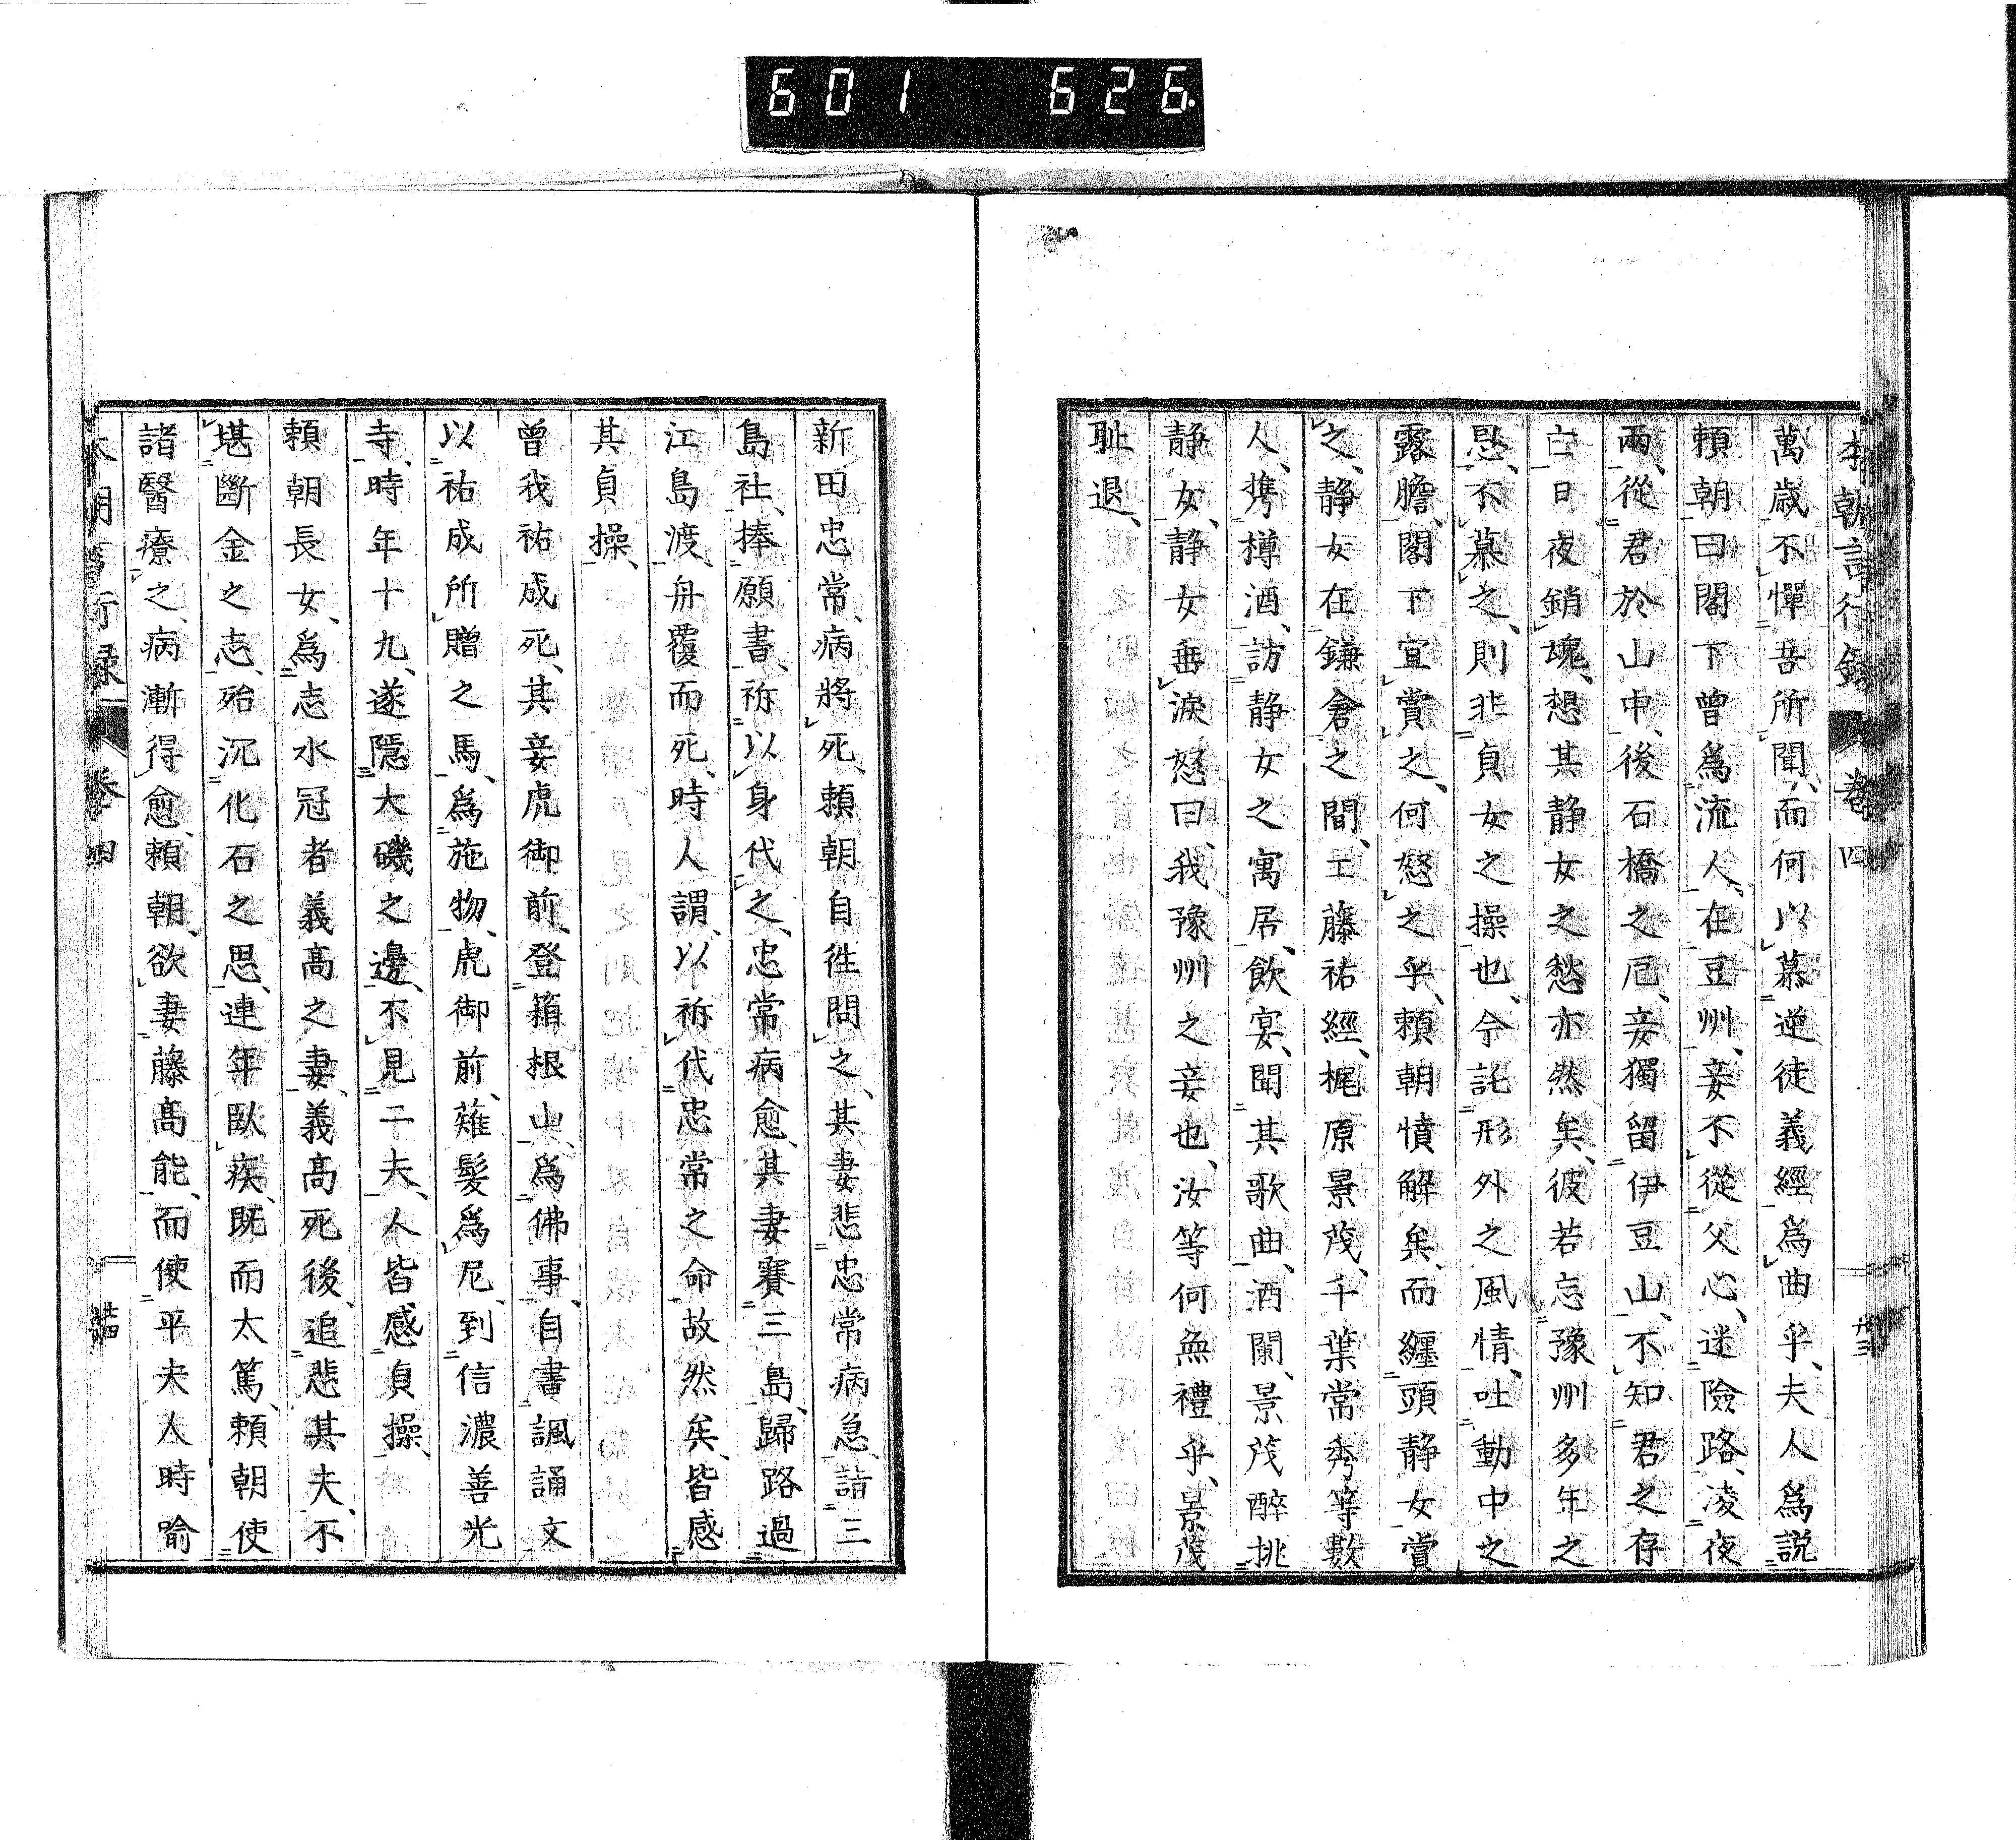 601 626
本朝言行録 卷四
萬歳不憚吾所聞而何以慕逆徒義經爲曲乎夫人爲說
賴朝曰閣下曾爲流人在豆州妾不從父心迷險路凌夜
雨從君於山中後石橋之厄妾獨留伊豆山不知君之存
亡日夜銷魂想其静女之愁亦然矣彼若忘豫州多年之
恩不慕之則非貞女之操也今託形外之風情吐動中之
露膽閣下宜賞之何怒之乎賴朝憤解矣而纏頭静女賞
之静女在鎌倉之間工藤祐經梶原景茂千葉常秀等數
人携樽酒訪静女之寓居飲宴聞其歌曲酒闌景茂醉挑
静女静女垂淚怒曰我豫州之妾也汝等何無禮乎景茂
耻退
新田忠常病將死賴朝自徃問之其妻悲忠常病急詣三
島社捧願書祈以身代之忠常病愈其妻賽三島歸路過
江島渡舟覆而死時人謂以祈代忠常之命故然矣皆感
其貞操
曾我祐成死其妾虎御前登箱根山爲佛事自書諷誦文
以祐成所贈之馬爲施物虎御前薙髮爲尼到信濃善光
寺時年十九遂隱大磯之邊不見二夫人皆感貞操
賴朝長女爲志水冠者義高之妻義高死後追悲其夫不
堪斷金之志殆沉化石之思連年臥疾既而太篤賴朝使
諸醫療之病漸得愈賴朝欲妻藤高能而使平夫人時喻
本朝言行録 卷四